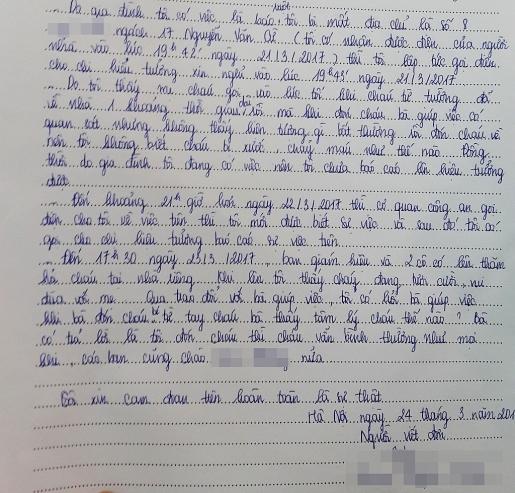 một
... Do gia đình tôi có việc là báo, tôi bị mất địa chỉ là số 8
ngách 17 Nguyễn Văn Cừ (tôi có nhận được điện của người
nhà vào lúc 19h42' ngày 21/3/2017) thì tôi lập tức gọi điện
cho chị hiệu trưởng xin nghỉ vào lúc 19h43' ngày 21/3/2017.
... Do tôi thấy mẹ cháu gọi vào lúc tối khi cháu từ trường đã
về nhà 1 khoảng thời gian dài, mà khi đón cháu bà giúp việc có
quan sát nhưng không thấy hiện tượng gì bất thường, tôi đón cháu về
nên tôi không biết cháu bị xước, chảy máu như thế nào. Đồng
thời do gia đình tôi đang có việc nên tôi chưa báo cáo lên hiệu trưởng
được.
... Đến khoảng 21h giờ hơn ngày 22/3/2017 thì cơ quan công an gọi
điện cho tôi về việc trên thì tôi mới được biết sự việc và sau đó tôi có
gọi cho chị hiệu trưởng báo cáo sự việc trên.
... Đến 17h30 ngày 23/3/2017, ban giám hiệu và 2 cô có lên thăm
hỏi cháu tại nhà riêng. Khi lên tôi thấy cháu đang tươi cười, vui
đùa với mẹ. Qua trao đổi với bà giúp việc, tôi có hỏi bà giúp việc
khi bà đón cháu từ tay cháu bà thấy tâm lý cháu thế nào? Bà
có trả lời là tôi đón cháu thì cháu vẫn bình thường như mọi
khi, các bạn cũng chào nữa.
Tôi xin cam đoan trên hoàn toàn là sự thật.
Hà Nội ngày 24 tháng 3 năm 201
Người viết đơn